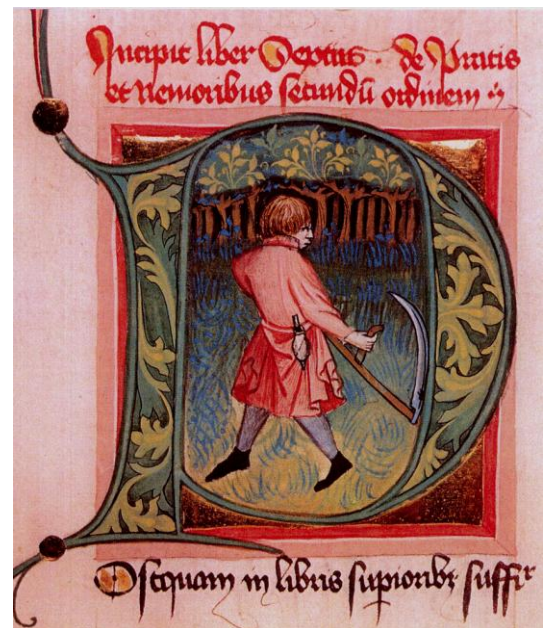 Incipit liber Septus . de Pratis
et nemoribus secundū ordinem
POstquam in libris supioribꝫ suffi